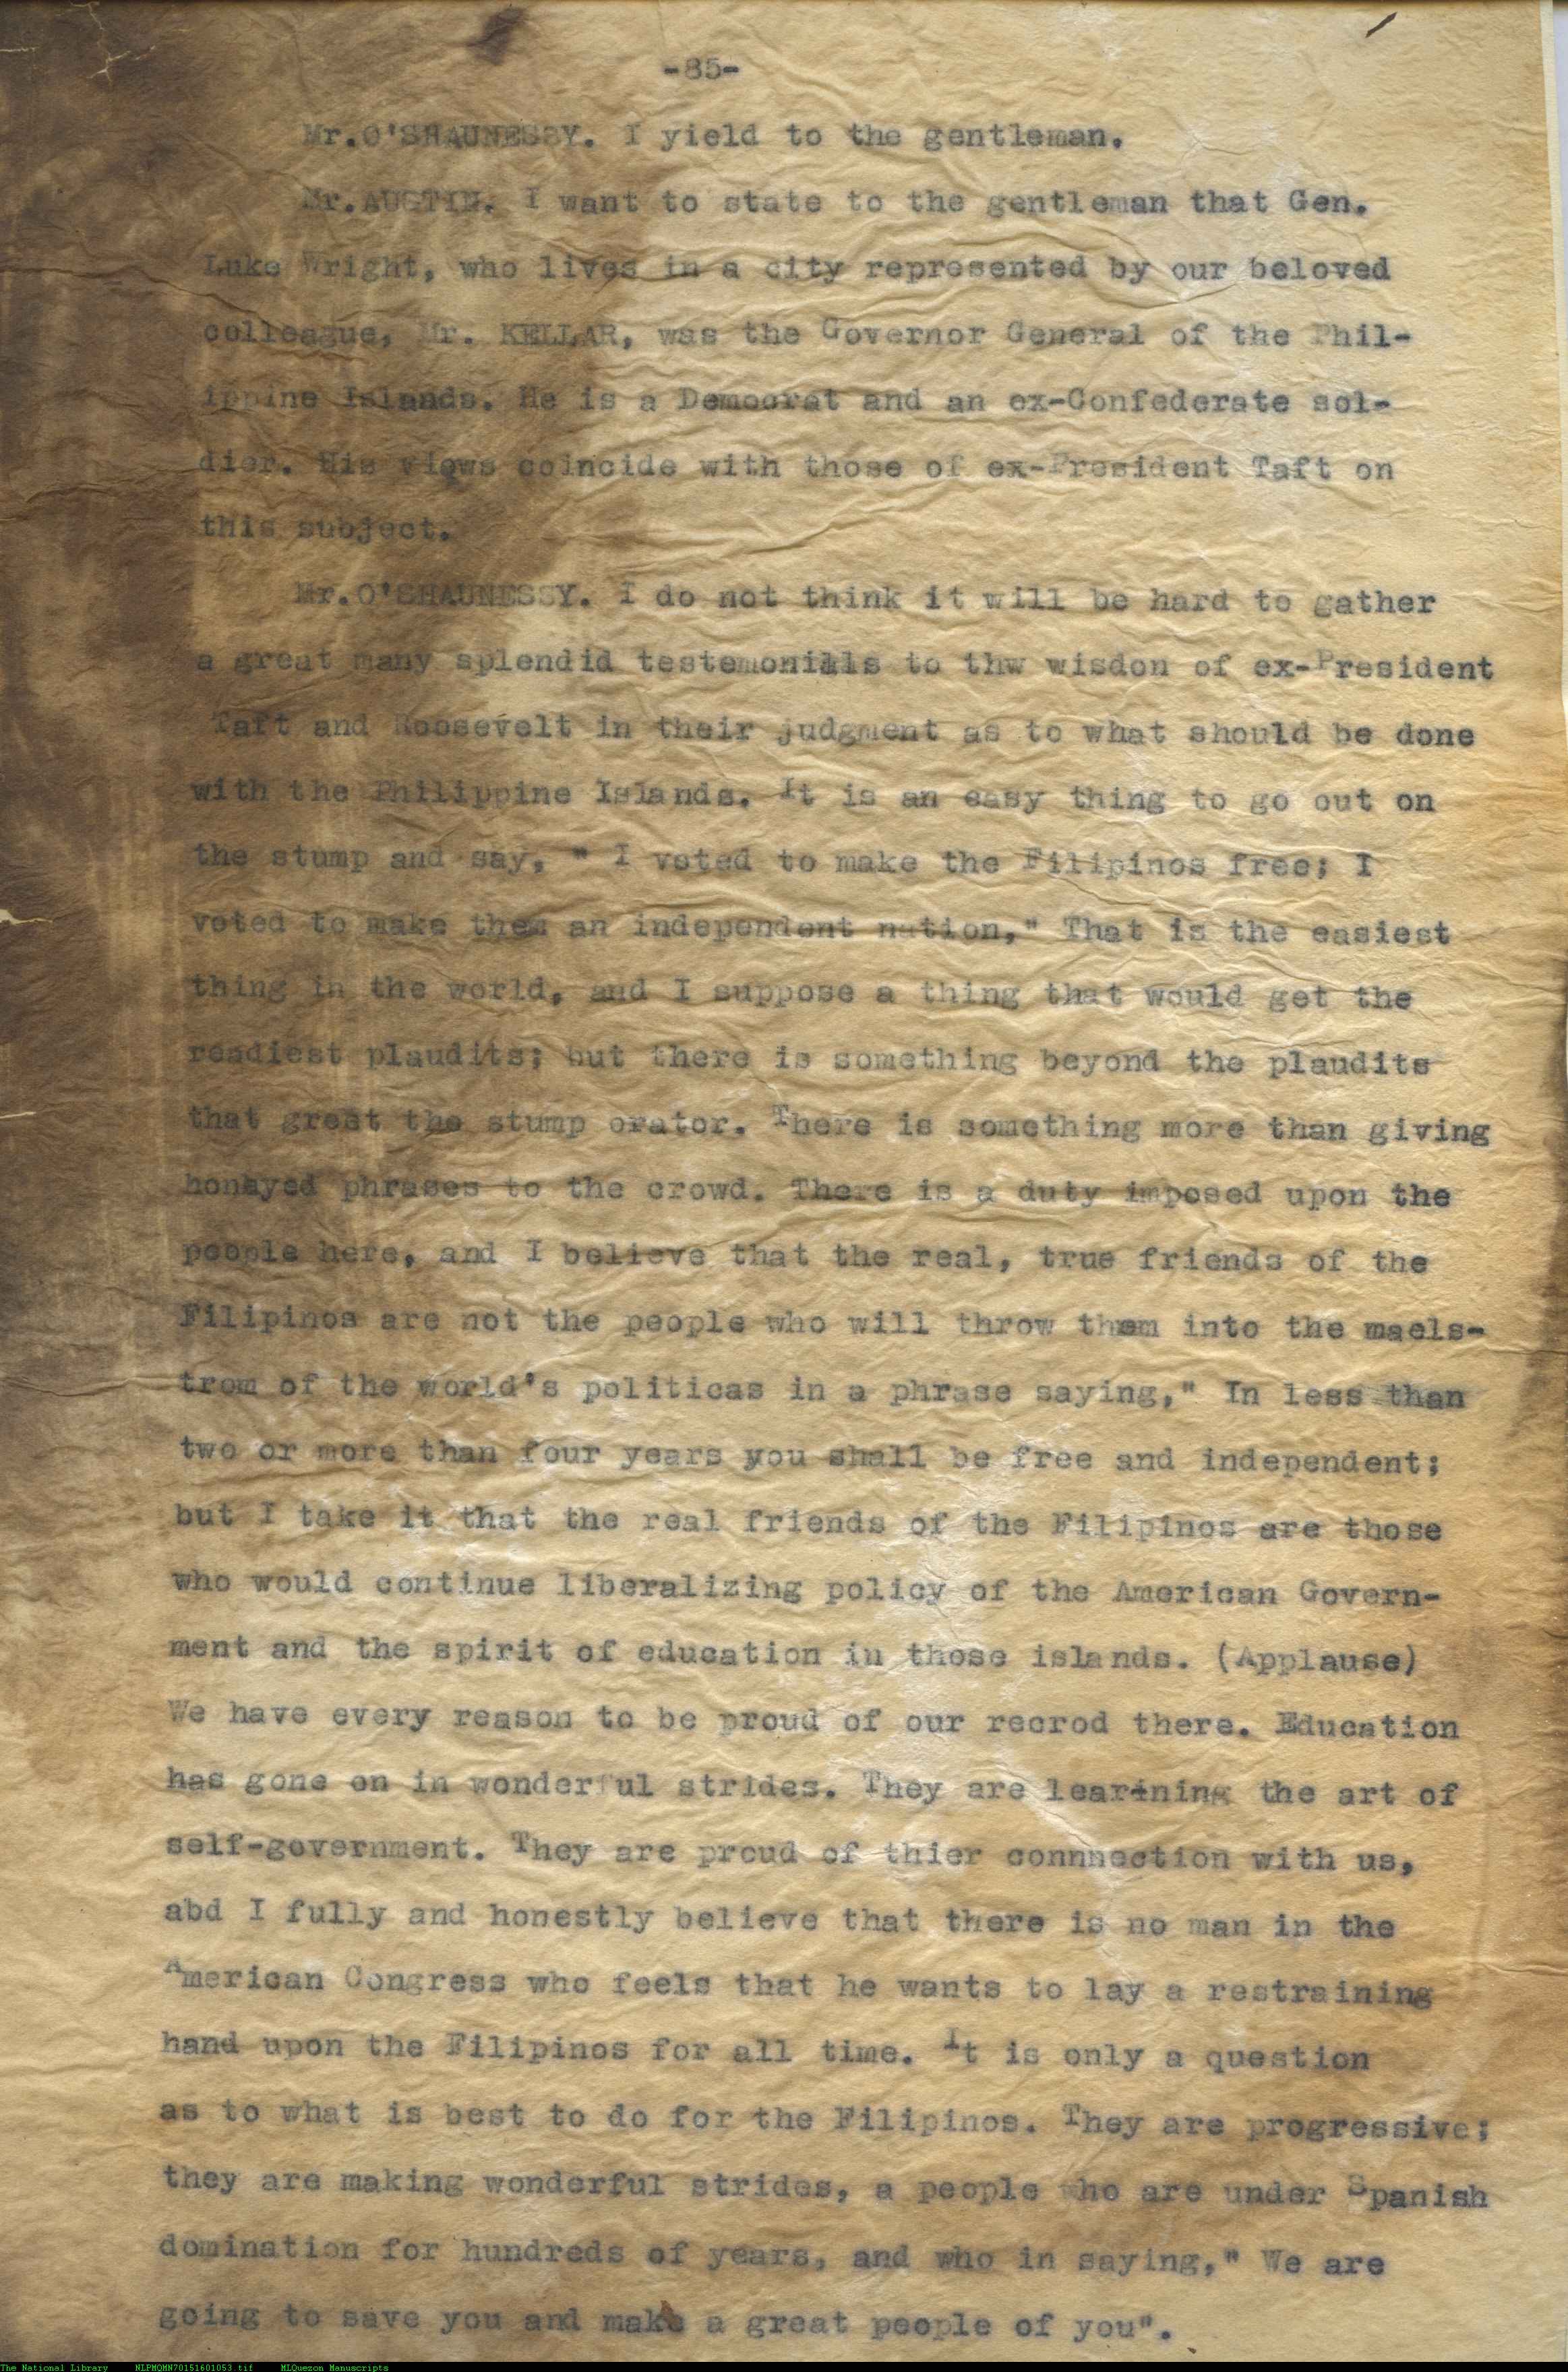 -85-
Mr.O'SHAUNESSY. I yield to the gentleman.
Mr.AUSTIN. I want to state to the gentleman that Gen.
Luke Wright, who lives in a city represented by our beloved
colleague, Mr. KELLAR, was the Governor General of the Phil-
ippine Islands. He is a Democrat and an ex-Confederate sol-
dier. His views coincide with those of ex-President Taft on
this subject.
Mr.O'SHAUNESSY. I do not think it will be hard to gather
a great many splendid testemonials to thw wisdon of ex-President
Taft and Roosevelt in their judgment as to what should be done
with the Philippine Islands. It is an easy thing to go out on
the stump and say, " I voted to make the Filipinos free; I
voted to make them an independent nation," That is the easiest
thing in the world, and I suppose a thing that would get the
readiest plaudits; but there is something beyond the plaudits
that greet the stump orator. There is something more than giving
honeyed phrases to the crowd. There is a duty imposed upon the
people here, and I believe that the real, true friends of the
Filipinos are not the people who will throw them into the maels-
trom of the world's politicas in a phrase saying," In less than
two or more than four years you shall be free and independent;
but I take it that the real friends of the Filipinos are those
who would continue liberalizing policy of the American Govern-
ment and the spirit of education in those islands. (Applause)
We have every reason to be proud of our recrod there. Education
has gone on in wonderful strides. They are learining the art of
self-government. They are proud of thier connnection with us,
abd I fully and honestly believe that there is no man in the
American Congress who feels that he wants to lay a restraining
hand upon the Filipinos for all time. It is only a question
as to what is best to do for the Filipinos. They are progressive;
they are making wonderful strides, a people who are under Spanish
domination for hundreds of years, and who in saying," We are
going to save you and make a great people of you".
The National Library NLPMQMN70151601053.tif MLQuezon Manuscripts